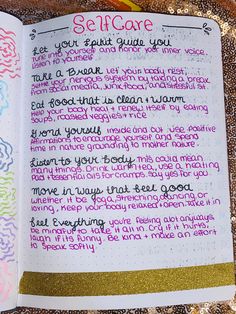 Self Care
Let your Spirit Guide you
Tune into yourself and honor your inner voice.
Listen to yourself
Take a Break Let your body rest,
Settle your nervous system by taking a break
from social media, junk food, and stressful st.
Eat food that is clean + warm
Help your body heal + renew itself by eating
soups, roasted veggies + rice
Grond yourself inside and out use positive
Affirmations to encourage yourself, and spend
time in nature grounding to mother nature.
Listen to your Body this could mean
many things. Drink warm tea, use a heating
pad + essential oils for cramps. Say yes for you
Move in ways that feel good
whether it be yoga, stretching, dancing or
loving, keep your body relaxed + open. Take it in
Feel Everything you're feeling alot anyways
be mindful to take it all in. Cry if it hurts,
laugh if its funny. Be kind + make an effort
to speak softly.